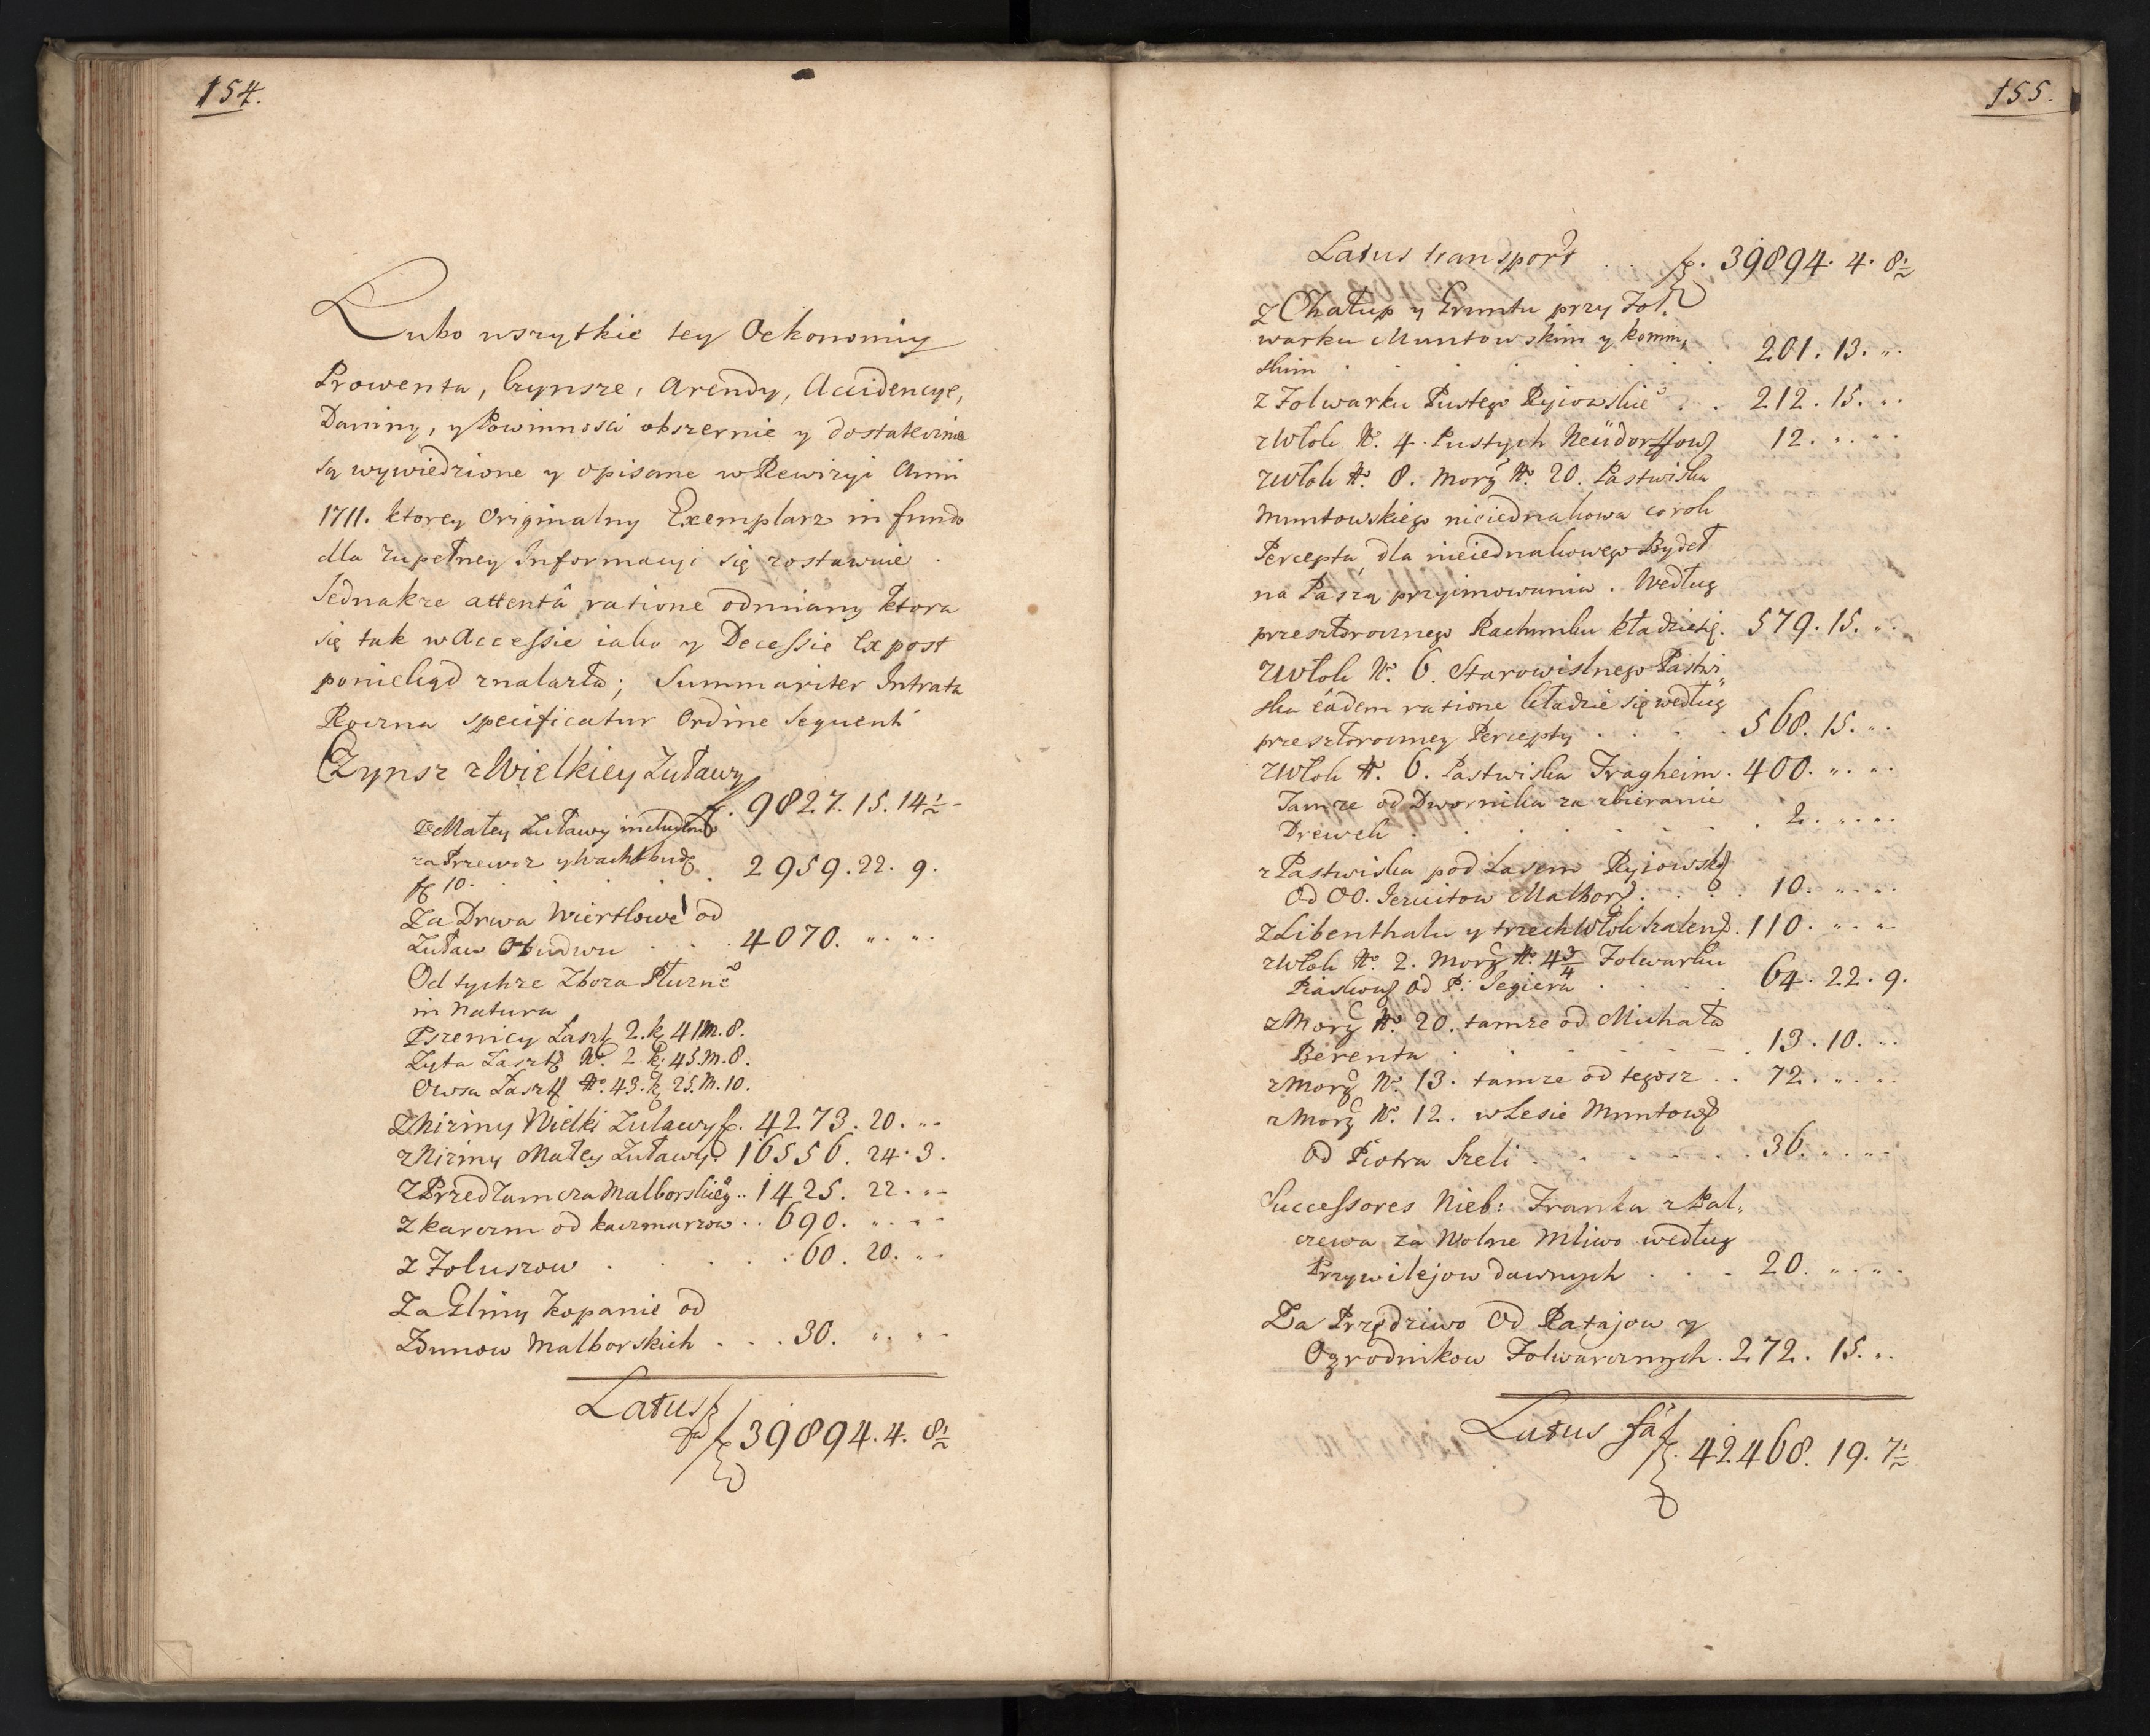 154.
Lubo wszytkie tey Oekonomiy
Prowenta, Czynsze, Arendy, Accidencye,
Daniny, y Powinnosci obszernie y dostatecznie
są wywiedzione y opisane w Rewizyi Anni
1711. ktorey Originalny Exemplarz in fundo
dla zupełney Informacyi się zostawuie.
Jednakze attentâ ratione odmiany ktora
się tak w Accessie iako y Decessie Ex post
poniekąd znalazła; Summariter Intrata
Roczna specificatur Ordine Sequenti
Czynsz z Wielkiey Zuławy
f. 9827. 15. 14½
z Małey Zuławy includendo
za Przewoz y Wachtbudę
f 10. . . . . 2959. 22. 9.
Za Drwa Wiertlowe od
Zuław Obudwu . . . 4070. „. „.
Od tychze Zboza Płużne°
in Natura
Pszenicy Łaszt 2. k. 41 M. 8.
Zyta Łaszt No. 2. k. 45. M. 8.
Owsa Łaszt No. 43. k. 25. M. 10.
Z Mirzmy Wielki Zuławy f. 4273. 20. „
z Mirzmy Małey Zuławy 16556. 24. 3.
Z Przedzamcza Malborskieg° .. 1425. 22. „
z karczm od kaczmarzow .. 690. „. „
z Foluszow . . . . . 60. 20. „
Za Gliny kopanie od
Zdunow Malborskich . . . 30. „. „
Latus
f 39894. 4. 8½
155.
Latus transport . . f. 39894. 4. 8½
z Chałup y Gruntu przy Fol„
warku Muntowskim y komm„
skim . . . . . . . 201. 13. „.
z Folwarku Pustego Ryiowskie° . . 212. 15. „.
z Włok No. 4. Pustych Neüdorffow 12. „. „.
z Włok No. 8. Morg No. 20. Pastwiska
Muntowskiego nieiednakowa co rok
Percepta, dla nieiednakowego Bydeł
na Paszą przyimowania. Według
przeszłorocznego Rachunku kładzie się. 579. 15. „.
z Włok No. 6. Starowislnego Pastwi„
ska eâdem ratione kładzie się według
przeszłoroczney Percepty . . . . 568. 15. „.
z Włok No. 6. Pastwiska Fragheim. 400. „. „.
Tamze od Dwornika za zbieranie
Drewek . . . . . . . 2. „. „.
z Pastwiska pod Lasem Ryiowsk
Od OO. Jezuitow Malborg . . . 10. „. „.
z Libenthalu y trzech Włok . 110. „. „
z Włok No. 2. Morg No. 4¾ Folwarku
Piaskow Od P: Segiera . . . . 64. 22. 9.
z Morg No. 20. tamze od Michała
Berenta . . . . . . 13. 10. „.
z Morg No. 13. tamze od tegosz . . 72. „. „.
z Morg No. 12. w Lesie Muntow
od Piotra Szeli . . . . . . 36. „. „.
Successores Nieb: Franka z Kal„
czewa za Wolne Mliwo według
Przywilejow dawnych . . . 20. „. „.
Za Przędziwo Od Ratajow y
Ogrodnikow Folwarcznych. 272. 15. „.
Latus fat
f. 42468. 19. 7½